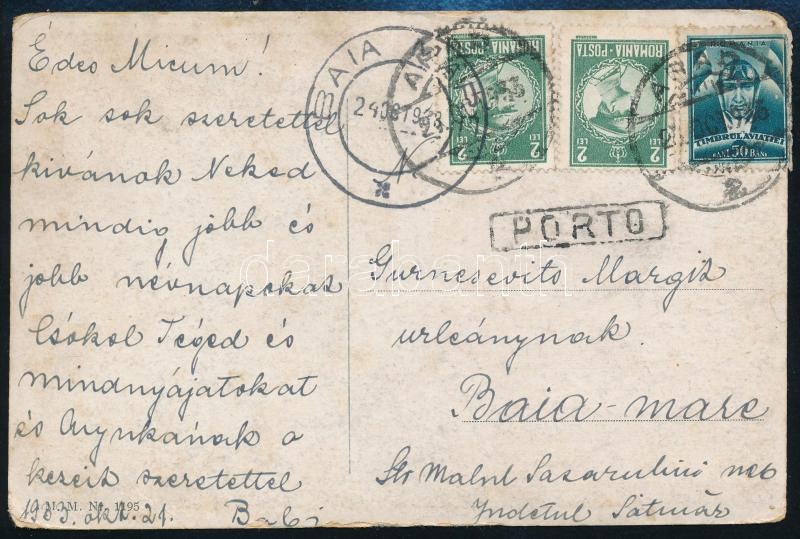 Édes Micum!
Sok sok szeretettel
kivánok Neked
mindig jobb és
jobb névnapokat
Csókol Téged és
mindnyájatokat
és Anynkának a
kezeit szeretettel
okt. 21.
M.J.M. Nr. 1195
BAIA
24 OC 1933
ROMANIA-POSTA
2 LEI
ROMANIA-POSTA
2 LEI
ROMANIA
TIMBRUL AVIATIEI
BANI 50 BANI
ARAD
PORTO
Margit
urleánynak.
Baia-mare
Str Malul
Judetul Satmár
darabanth